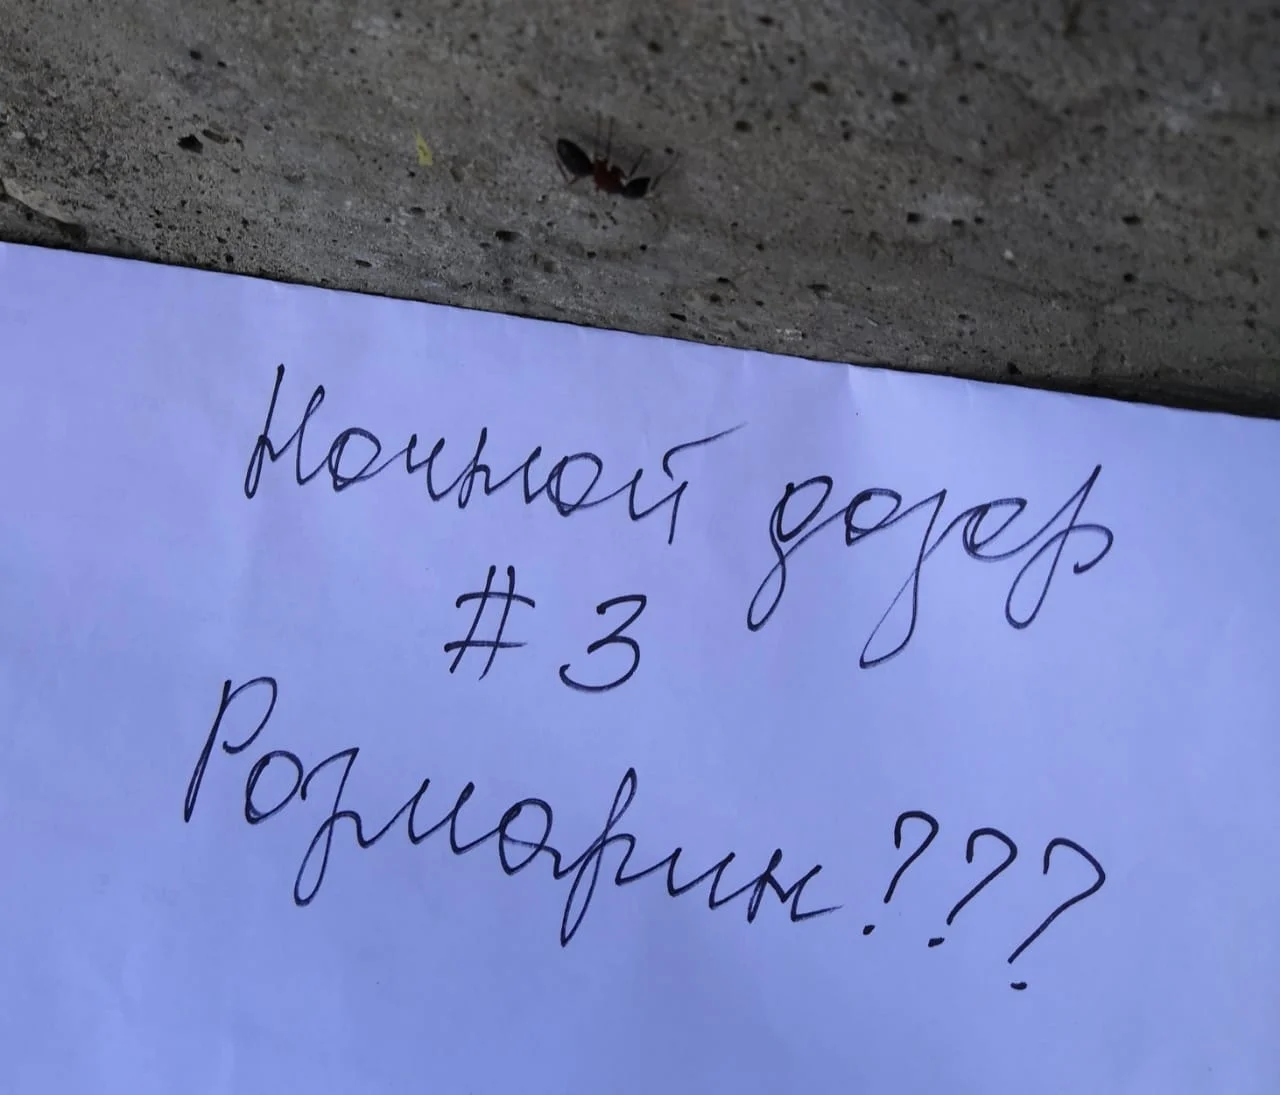 Ночной дозор
# 3
Розмарин???